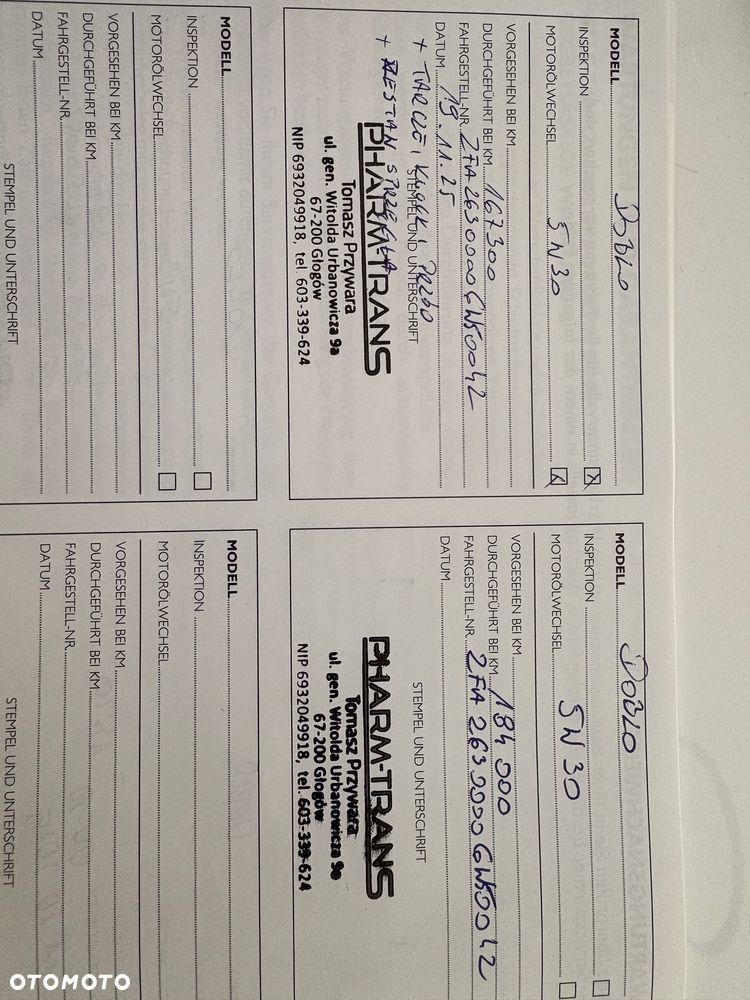 MODELL DOBLO
INSPEKTION X
MOTORÖLWECHSEL 5W30
VORGESEHEN BEI KM
DURCHGEFÜHRT BEI KM 167300
FAHRGESTELL-NR. ZFA2630000GW50042
DATUM 19.11.25
STEMPEL UND UNTERSCHRIFT
+ TARCZE i KLOCKI PRZÓD
+
PHARM-TRANS
Tomasz Przywara
ul. gen. Witolda Urbanowicza 9a
67-200 Głogów
NIP 6932049918, tel. 603-339-624
MODELL DOBLO
INSPEKTION
MOTORÖLWECHSEL 5W30
VORGESEHEN BEI KM
DURCHGEFÜHRT BEI KM 184000
FAHRGESTELL-NR. ZFA2630000GW50042
DATUM
STEMPEL UND UNTERSCHRIFT
PHARM-TRANS
Tomasz Przywara
ul. gen. Witolda Urbanowicza 9a
67-200 Głogów
NIP 6932049918, tel. 603-339-624
MODELL
INSPEKTION
MOTORÖLWECHSEL
VORGESEHEN BEI KM
DURCHGEFÜHRT BEI KM
FAHRGESTELL-NR.
DATUM
STEMPEL UND UNTERSCHRIFT
MODELL
INSPEKTION
MOTORÖLWECHSEL
VORGESEHEN BEI KM
DURCHGEFÜHRT BEI KM
FAHRGESTELL-NR.
DATUM
STEMPEL UND UNTERSCHRIFT
OTOMOTO